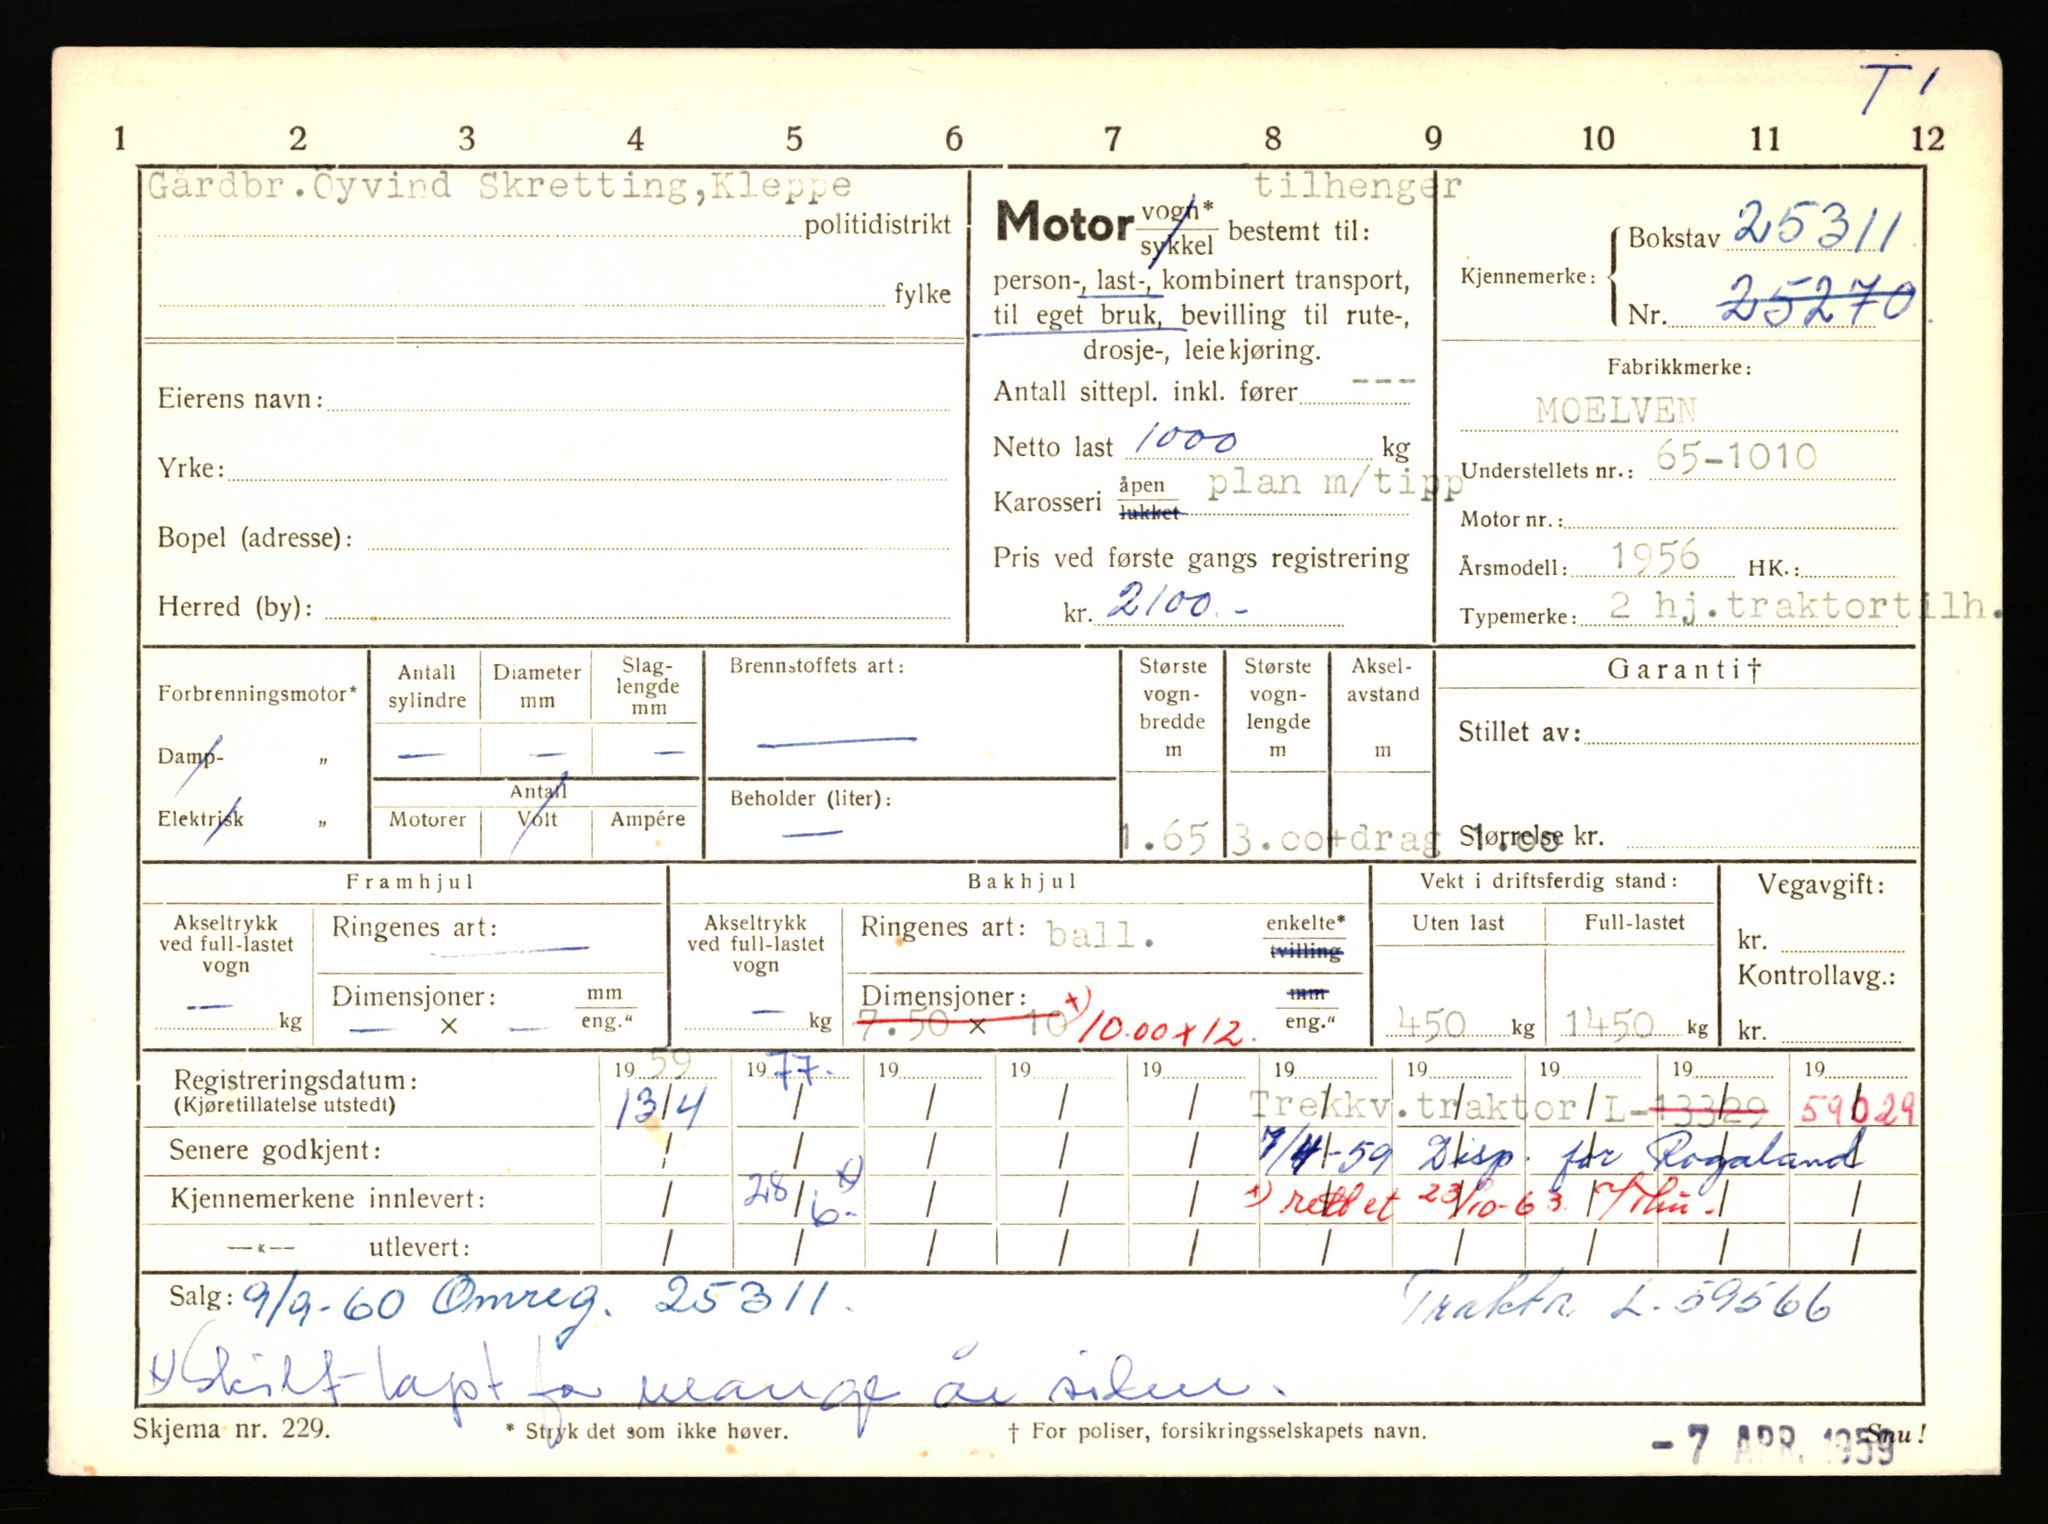 T 1
1 2 3 4 5 6 7 8 9 10 11 12
Gårdbr.Öyvind Skretting,Kleppe
politidistrikt
fylke
Eierens navn:
Yrke:
Bopel (adresse):
Herred (by):
tilhenger
Motor vogn* sykkel bestemt til:
person-, last-, kombinert transport,
til eget bruk, bevilling til rute-,
drosje-, leiekjøring.
Antall sittepl. inkl. fører ---
Netto last 1000 kg
Karosseri åpen lukket plan m/tipp
Pris ved første gangs registrering
kr. 2100.-
Kjennemerke: Bokstav 25311
Nr. 25270
Fabrikkmerke:
MOELVEN
Understellets nr.: 65-1010
Motor nr.:
Årsmodell: 1956 HK.:
Typemerke: 2 hj.traktortilh.
Forbrenningsmotor*
Damp- „
Elektrisk „
Antall sylindre — Diameter mm — Slaglengde mm —
Antall
Motorer Volt Ampére
Brennstoffets art: —
Beholder (liter): —
Største vogn-bredde m 1.65
Største vogn-lengde m 3.00+drag 1.00
Aksel-avstand m
Garanti†
Stillet av:
Størrelse kr.
Framhjul
Akseltrykk ved full-lastet vogn — kg
Ringenes art: —
Dimensjoner: — × — mm eng."
Bakhjul
Akseltrykk ved full-lastet vogn — kg
Ringenes art: ball. enkelte* tvilling
Dimensjoner: 7.50 × 10 +) 10.00 x 12. mm eng."
Vekt i driftsferdig stand:
Uten last 450 kg
Full-lastet 1450 kg
Vegavgift:
kr.
Kontrollavg.:
kr.
19 59 19 77. 19 19 19 19 19 19 19 19
Registreringsdatum: (Kjøretillatelse utstedt) 13/4 Trekkv.traktor L-13329 59029
Senere godkjent: 7/4-59 Disp. for Rogaland
Kjennemerkene innlevert: 28/6- x) +) rettet 23/10-63.
—«— utlevert:
Salg: 9/9-60 Omreg. 25311. Traktor L-59566
x) Skilt tapt for mange år siden.
Skjema nr. 229. * Stryk det som ikke høver. † For poliser, forsikringsselskapets navn. Snu!
- 7 APR. 1959